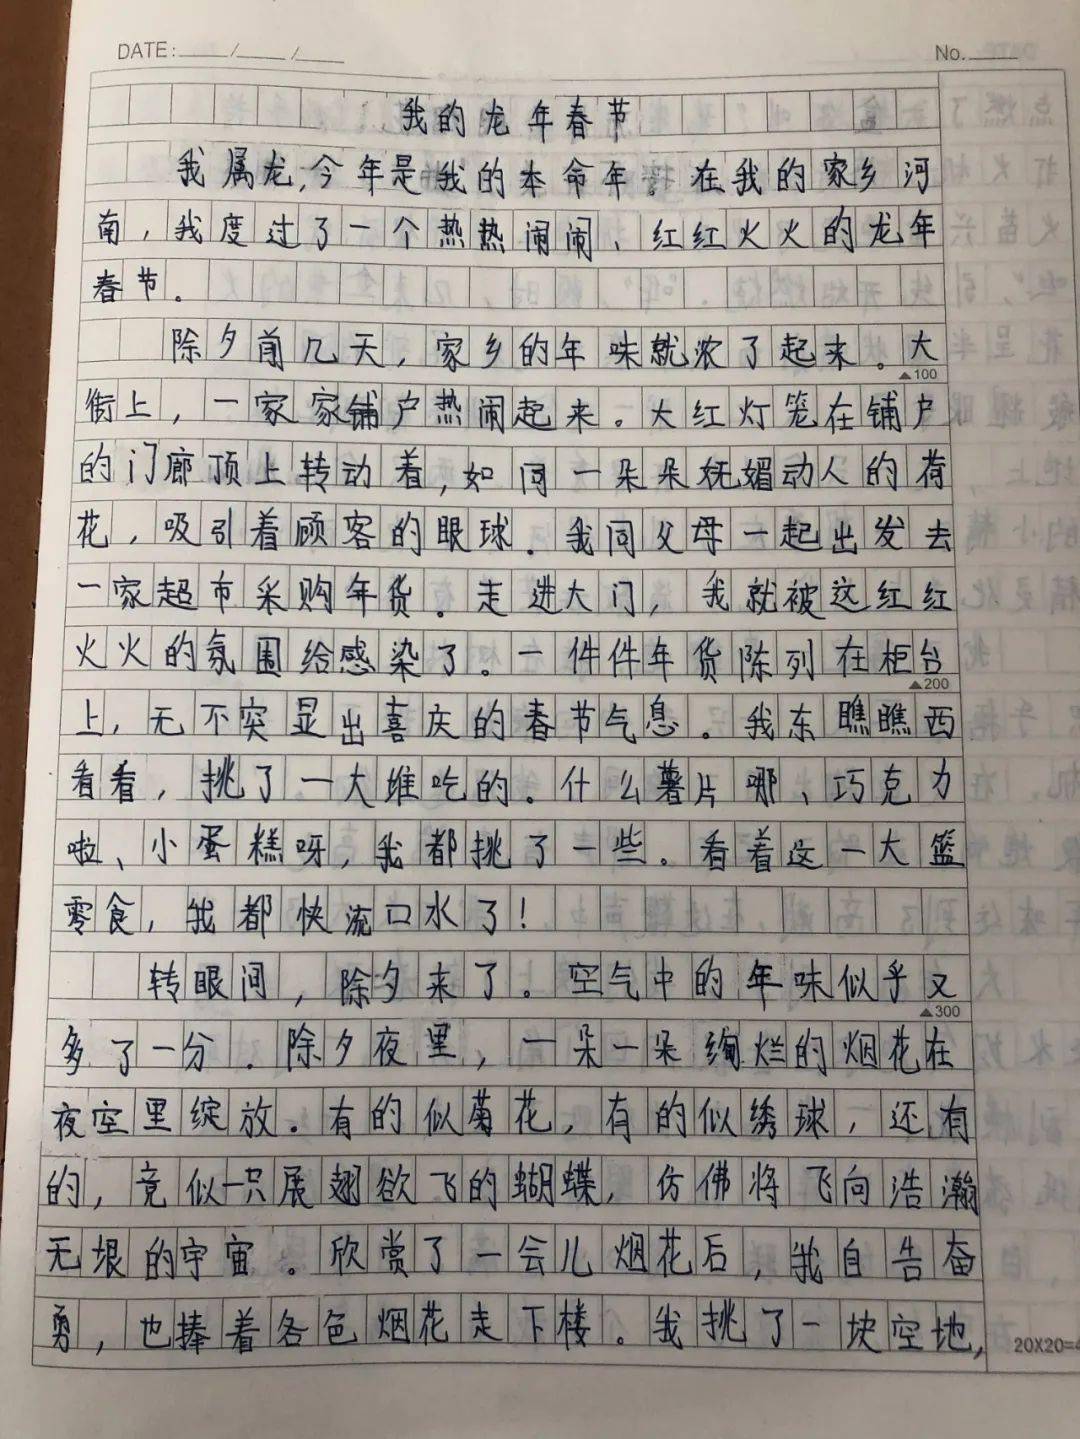 DATE: ___/___/___ No.____
我的龙年春节
我属龙,今年是我的本命年。在我的家乡河
南,我度过了一个热热闹闹、红红火火的龙年
春节。
除夕前几天,家乡的年味就浓了起来。大
▲100
街上,一家家铺户热闹起来。大红灯笼在铺户
的门廊顶上转动着,如同一朵朵妩媚动人的荷
花,吸引着顾客的眼球。我同父母一起出发去
一家超市采购年货。走进大门,我就被这红红
火火的氛围给感染了。一件件年货陈列在柜台
▲200
上,无不突显出喜庆的春节气息。我东瞧瞧西
看看,挑了一大堆吃的。什么薯片哪、巧克力
啦、小蛋糕呀,我都挑了一些。看着这一大篮
零食,我都快流口水了!
转眼间,除夕来了。空气中的年味似乎又
▲300
多了一分。除夕夜里,一朵一朵绚烂的烟花在
夜空里绽放。有的似菊花,有的似绣球,还有
的,竟似一只展翅欲飞的蝴蝶,仿佛将飞向浩瀚
无垠的宇宙。欣赏了一会儿烟花后,我自告奋
勇,也捧着各色烟花走下楼。我挑了一块空地,
20X20=4